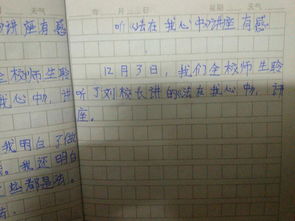 讲座有感
全校师生聆
我心中》,讲
我明白了做
。我还明白
些都是法。
天气
星期 天气
听《法在我心中》讲座有感
12月3日,我们全校师生聆
听了刘校长讲的《法在我心中》,讲
座。